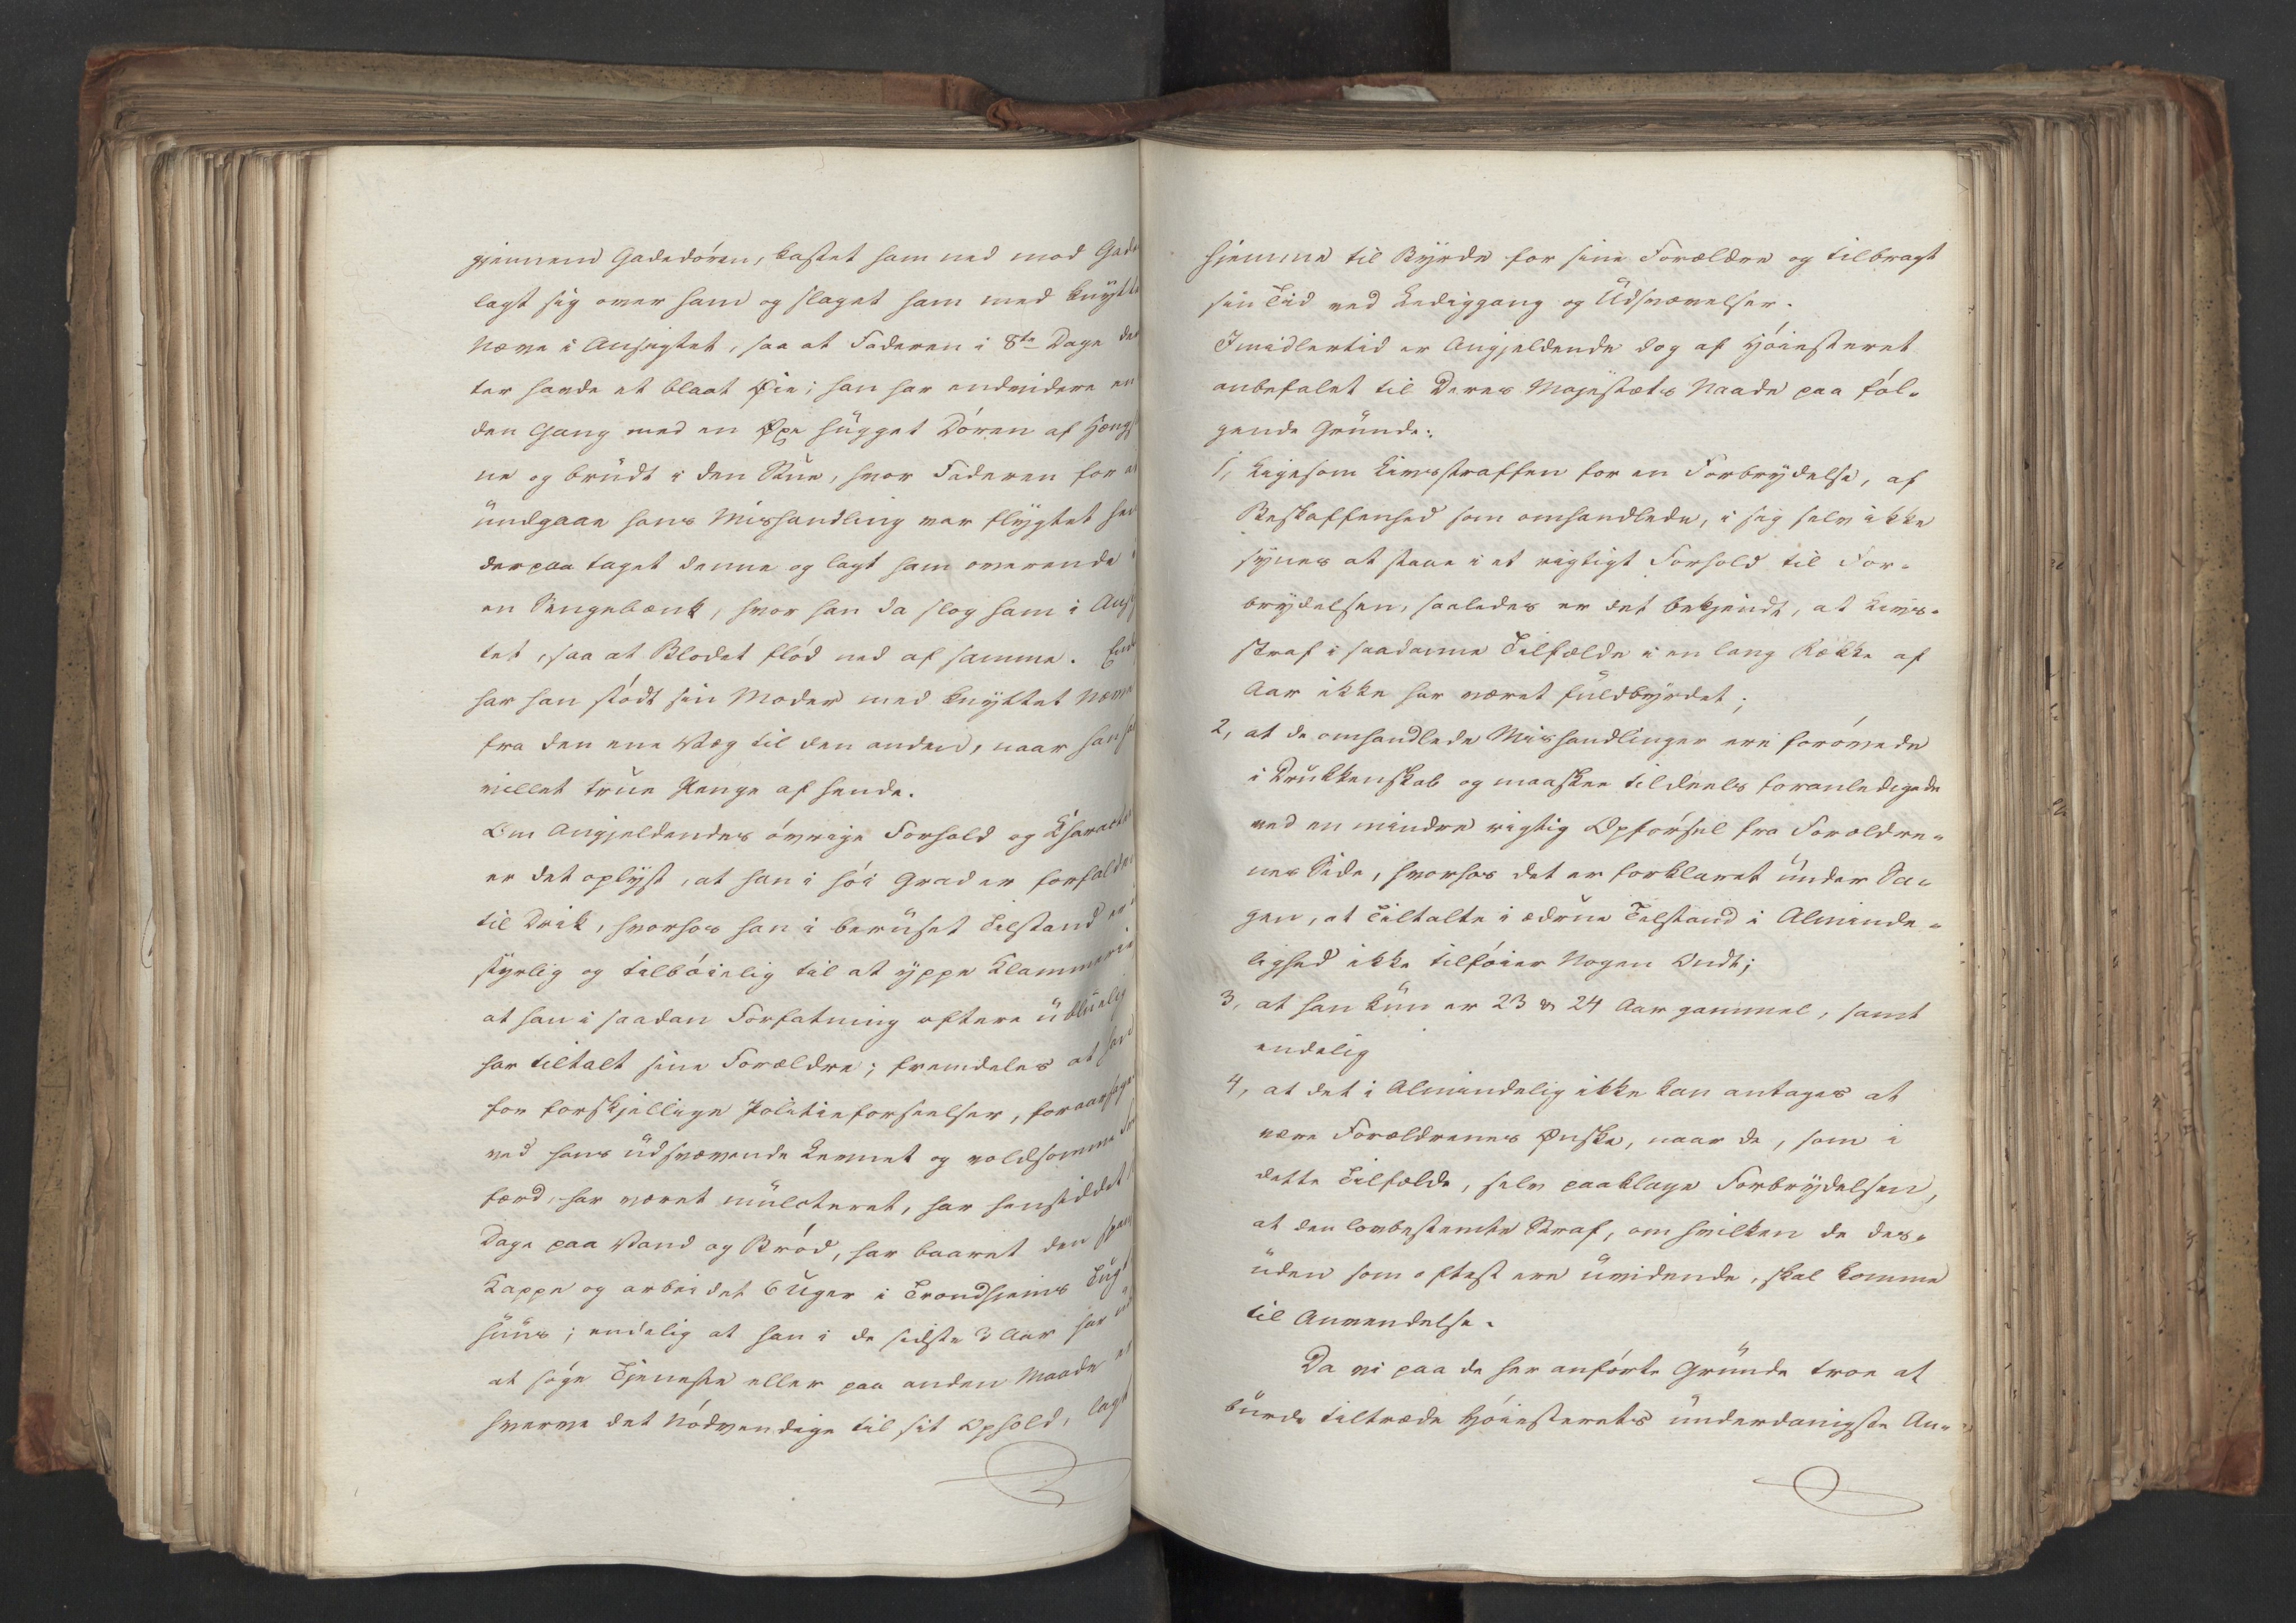 gjennem Gadedøren, kastet ham ned mod Gad
lagt sig over ham og slaget ham med knytt
Næve i Ansigtet, saa at Faderen i 8te Dage
ter havde et blaat Øie; han har endvidere en
den Gang med en Øxe hugget Døren af Hæng
ne og brudt i den Stue, hvor Faderen for a
undgaae hans Mishandling var flygtet hen
derpaa taget denne og lagt ham overende i
en Sengebænk, hvor han da slog ham i Ansi
tet, saa at Blodet flød ned af samme. End
har han stødt sin Moder med knyttet Næve
fra den ene Væg til den anden, naar han ha
villet true Penge af hende.
Om Angjeldendes øvrige Forhold og Characte
er det oplyst, at han i høi Grad er forfalden
til Drik, hvorhos han i beruset Tilstand er u
styrlig og tilbøielig til at yppe Klammerie
at han i saadan Forfatning oftere ubluelig
har tiltalt sine Forældre; fremdeles at han
for forskjellige Politieforseelser, foraarsage
ved hans udsvævende Levnet og voldsomme Fre
færd, har været mulcteret, har hensiddet
Dage paa Vand og Brød, har baaret den span
Kappe og arbeidet 6 Uger i Trondhjems Tugt
huus; endelig at han i de sidste 3 Aar har ud
at søge Tjeneste eller paa anden Maade at
hverve det Nødvendige til sit Ophold, lagt
hjemme til Byrde for sine Forældre og tilbragt
sin Tid ved Lediggang og Udsvævelser.
Imidlertid er Angjeldende dog af Høiesteret
anbefalet til Deres Majestæts Naade paa føl-
gende Grunde:
1, Ligesom Livsstraffen for en Forbrydelse, af
Beskaffenhed som omhandlede, i sig selv ikke
synes at staae i et rigtigt Forhold til For-
brydelsen, saaledes er det bekjendt, at Livs-
straf i saadanne Tilfælde i en lang Række af
Aar ikke har været fuldbyrdet;
2, at de omhandlede Mishandlinger ere forøvede
i Drukkenskab og maaskee tildeels foranledigede
ved en mindre rigtig Opførsel fra Forældre-
nes Side, hvorhos det er forklaret under Sa-
gen, at Tiltalte i ædrue Tilstand i Alminde-
lighed ikke tilføier Nogen Ondt;
3, at han kun er 23 a 24 Aar gammel, samt
endelig
4, at det i Almindelig ikke kan antages at
være Forældrenes Ønske, naar de, som i
dette Tilfælde, selv paaklage Forbrydelsen,
at den lovbestemte Straf, om hvilken de des-
uden som oftest ere uvidende, skal komme
til Anvendelse.
Da vi paa de her anførte Grunde troe at
burde tiltræde Høiesterets underdanigste An-